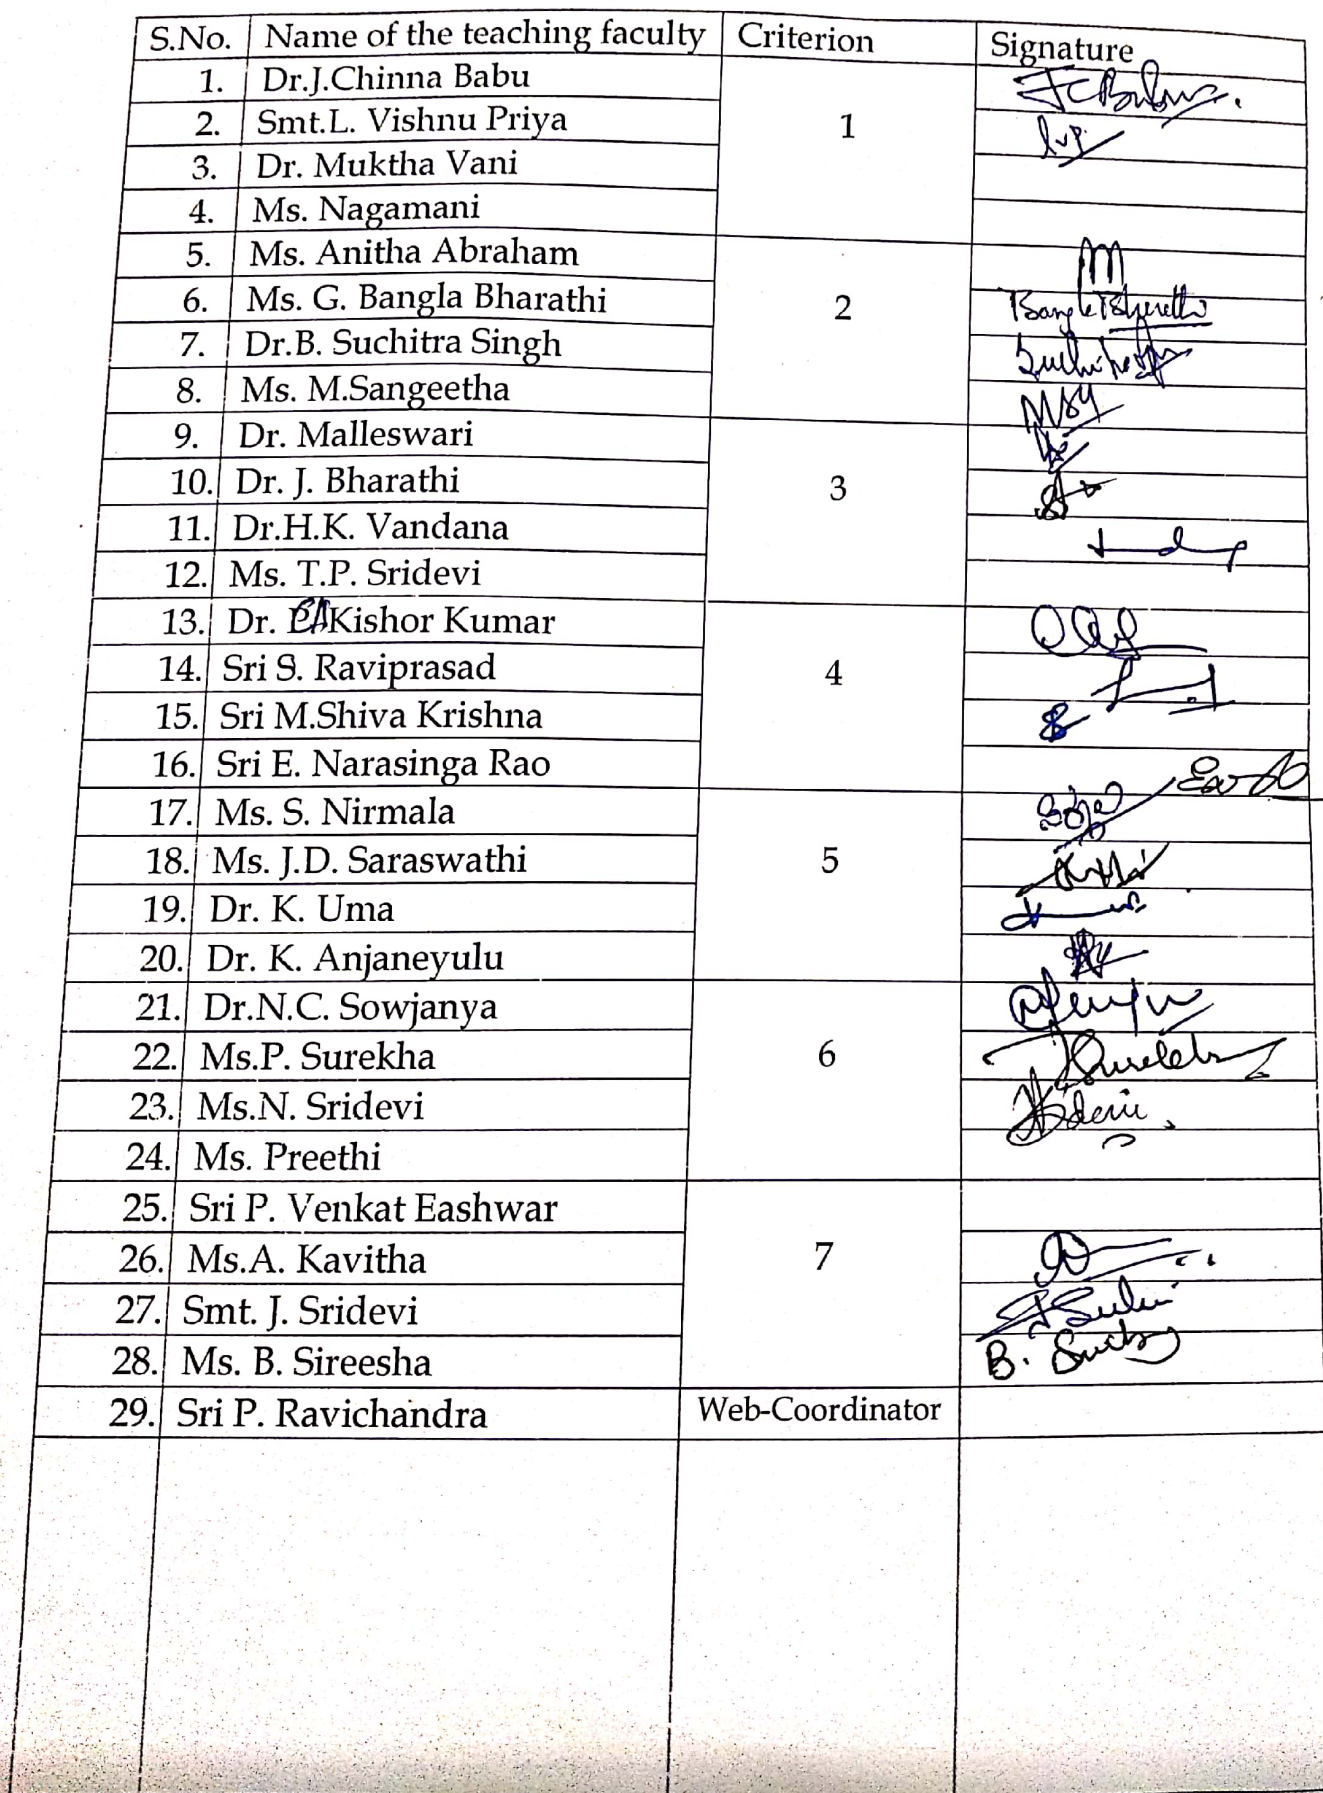 S.No. Name of the teaching faculty Criterion Signature
1. Dr.J.Chinna Babu
2. Smt.L. Vishnu Priya 1
3. Dr. Muktha Vani
4. Ms. Nagamani
5. Ms. Anitha Abraham
6. Ms. G. Bangla Bharathi 2
7. Dr.B. Suchitra Singh
8. Ms. M.Sangeetha
9. Dr. Malleswari
10. Dr. J. Bharathi 3
11. Dr.H.K. Vandana
12. Ms. T.P. Sridevi
13. Dr. Kishor Kumar
14. Sri S. Raviprasad 4
15. Sri M.Shiva Krishna
16. Sri E. Narasinga Rao
17. Ms. S. Nirmala
18. Ms. J.D. Saraswathi 5
19. Dr. K. Uma
20. Dr. K. Anjaneyulu
21. Dr.N.C. Sowjanya
22. Ms.P. Surekha 6
23. Ms.N. Sridevi
24. Ms. Preethi
25. Sri P. Venkat Eashwar
26. Ms.A. Kavitha 7
27. Smt. J. Sridevi
28. Ms. B. Sireesha
29. Sri P. Ravichandra Web-Coordinator